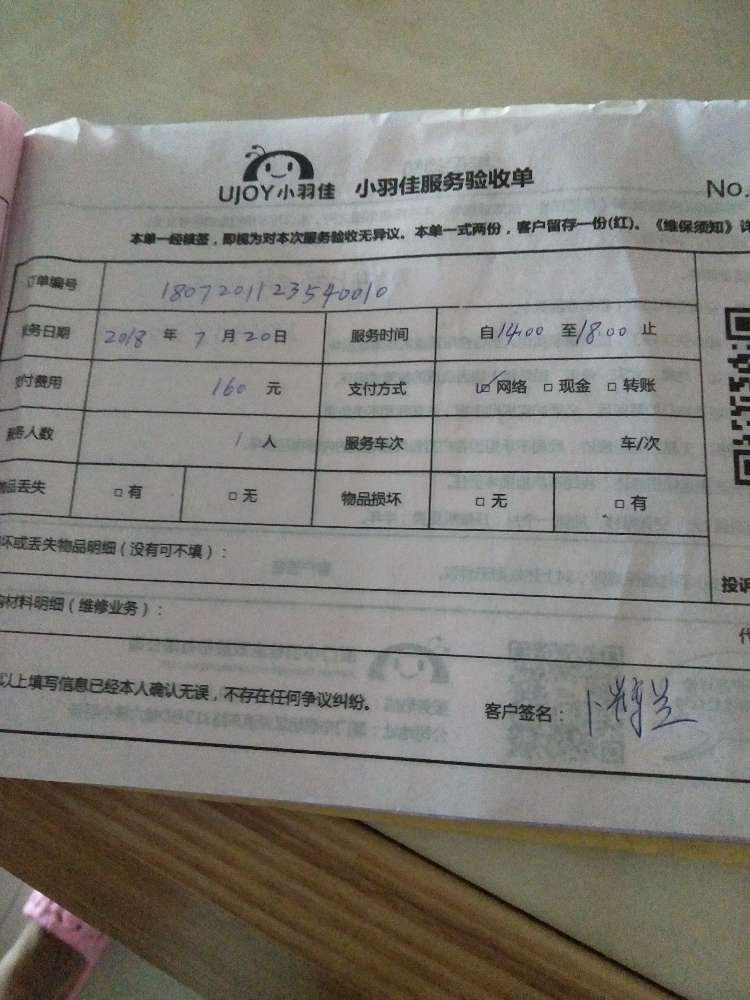 UJOY小羽佳 小羽佳服务验收单
No.
本单一经核签，即视为对本次服务验收无异议。本单一式两份，客户留存一份(红)。《维保须知》详
订单编号 1807201123540010
服务日期 2018 年 7 月 20 日 服务时间 自14:00 至18:00 止
付费用 160 元 支付方式 ☑网络 □现金 □转账
服务人数 1 人 服务车次 车/次
物品丢失 □有 □无 物品损坏 □无 □有
坏或丢失物品明细（没有可不填）：
投诉
购材料明细（维修业务）：
代
以上填写信息已经本人确认无误，不存在任何争议纠纷。
客户签名：